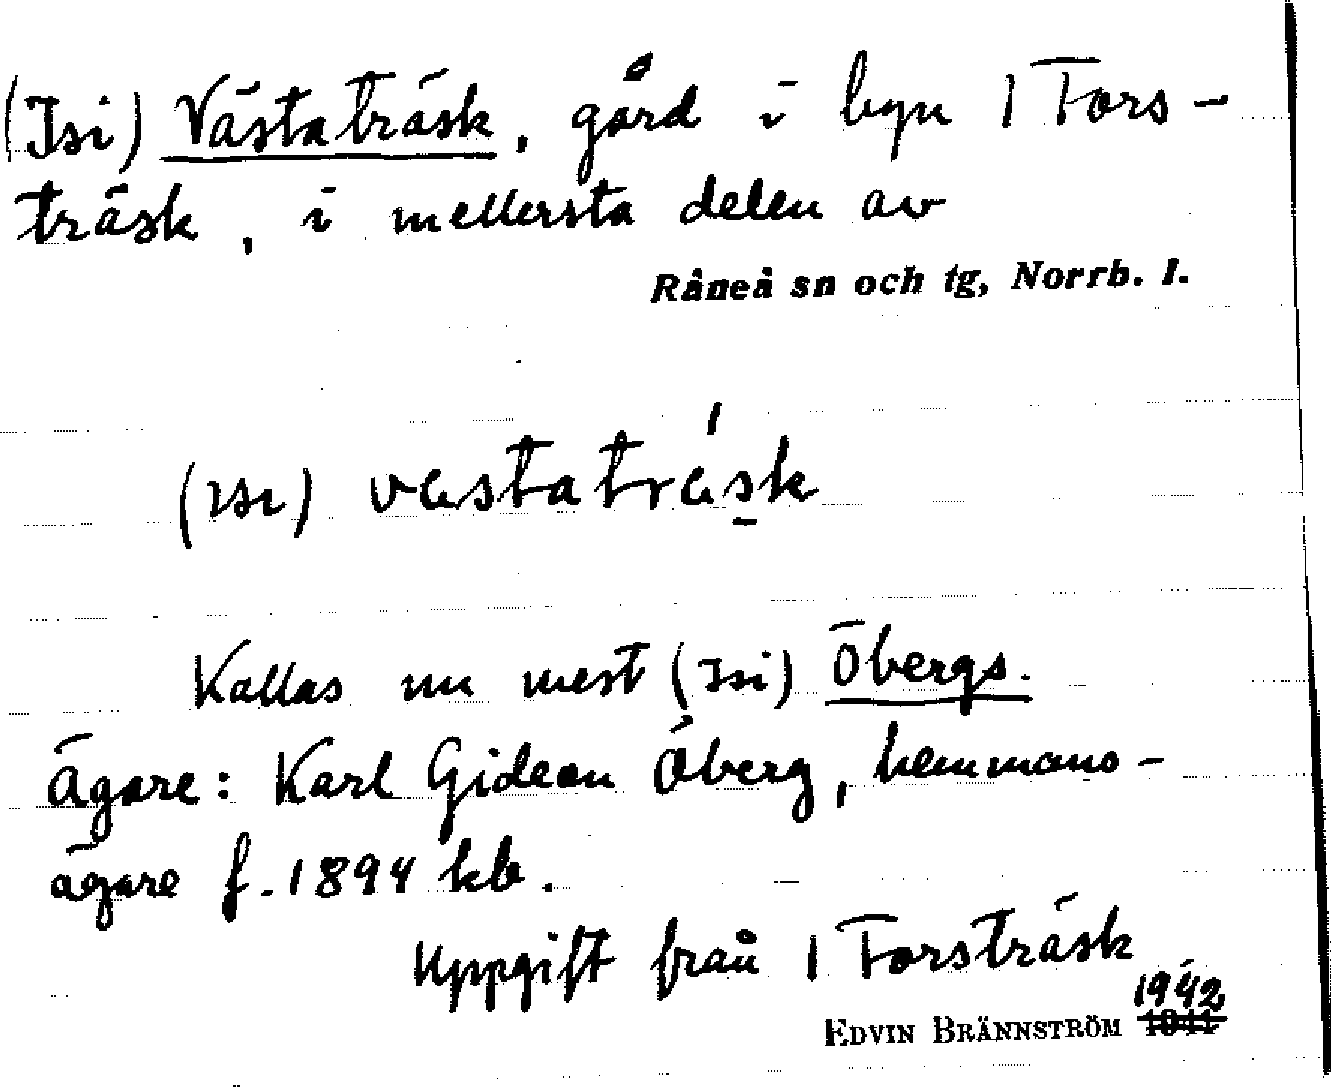 (Isi) Västaträsk, gård i byn 1 Fors-
träsk, i mellersta delen av
Råneå sn och tg, Norrb. l.
(ısı) vɛstatrɛ́sk
Kallas nu mest (Isi) Öbergs.
Ägare: Karl Gideon Öberg, hemmans-
ägare f. 1894 kb.
Uppgift från 1 Forsträsk
1942
EDVIN BRÄNNSTRÖM 1941